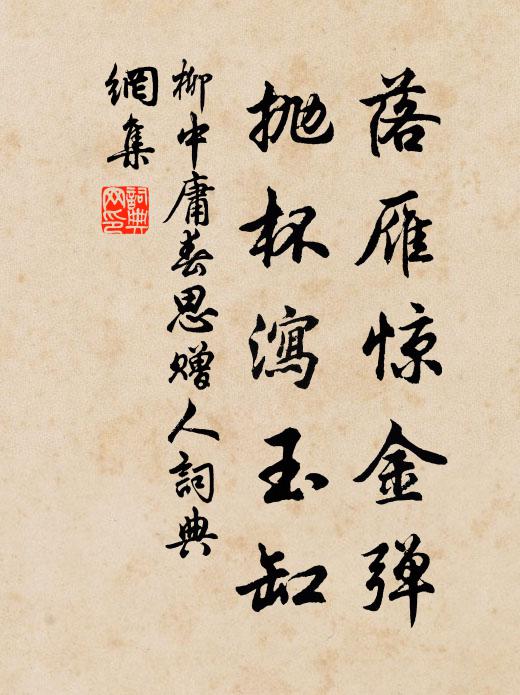 落雁惊金弹
抛杯瀉玉缸
柳中庸春思赠人詞典
網集
詞典
网印